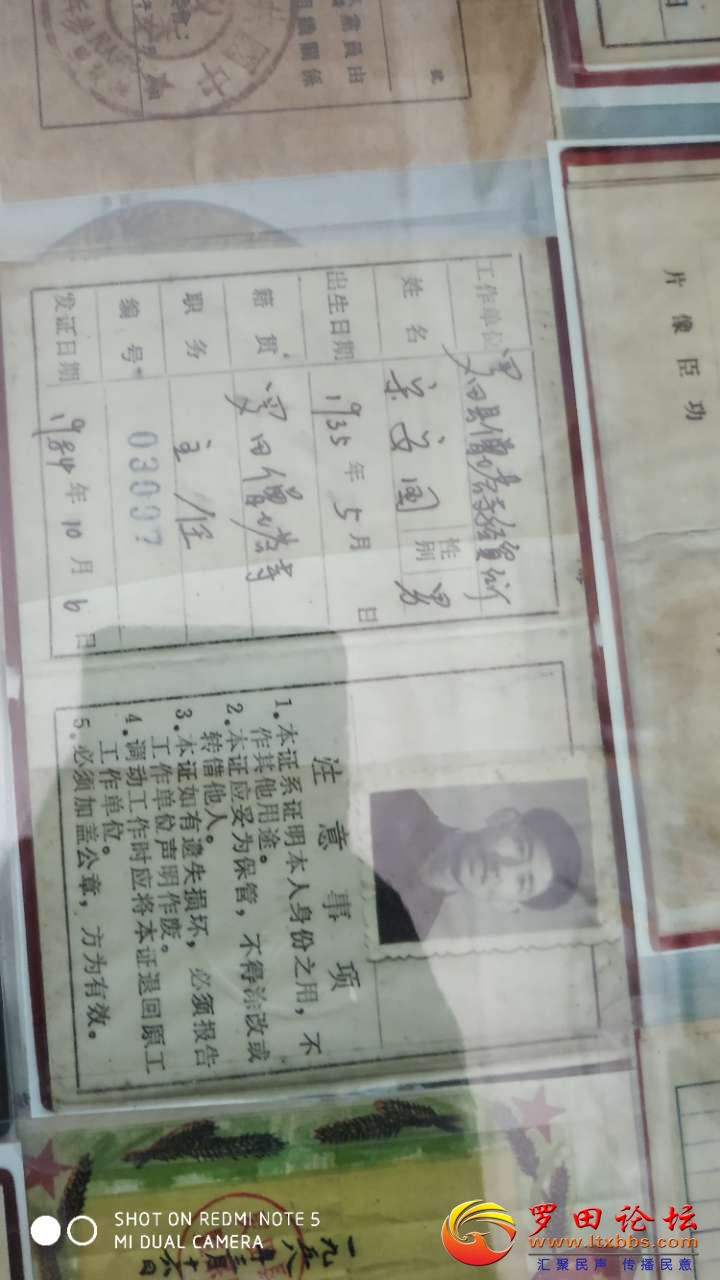 贰
人党员由
组织关係
工作单位 罗田县僧塔寺
姓名
性别 男
出生日期 1935年5月 日
籍贯 罗田僧塔寺
职务 主任
编号 03097
发证日期 1984年10月6日
注意事项
1.本证系证明本人身份之用，不
作其他用途。
2.本证应妥为保管，不得涂改或
转借他人。
3.本证如有遗失损坏，必须报告
工作单位声明作废。
4.调动工作时应将本证退回原工
工作单位。
5.必须加盖公章，方为有效。
片像臣功
一九五八年三月十六日
SHOT ON REDMI NOTE 5
MI DUAL CAMERA
罗田论坛
www.ltxbbs.com
汇聚民声 传播民意